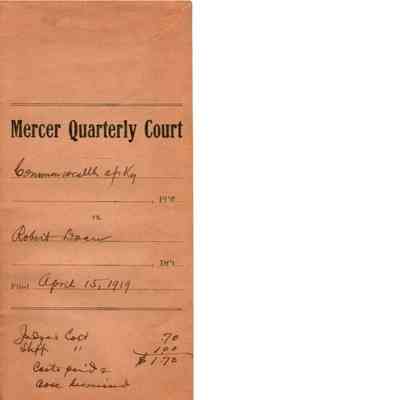 Mercer Quarterly Court
Commonwealth of Ky
, Pl'ff
vs.
Robert
, Def't
Filed April 15, 1919
Judges Cost .70
Shff " 1.00
$1.70
Costs paid &
case dismissed